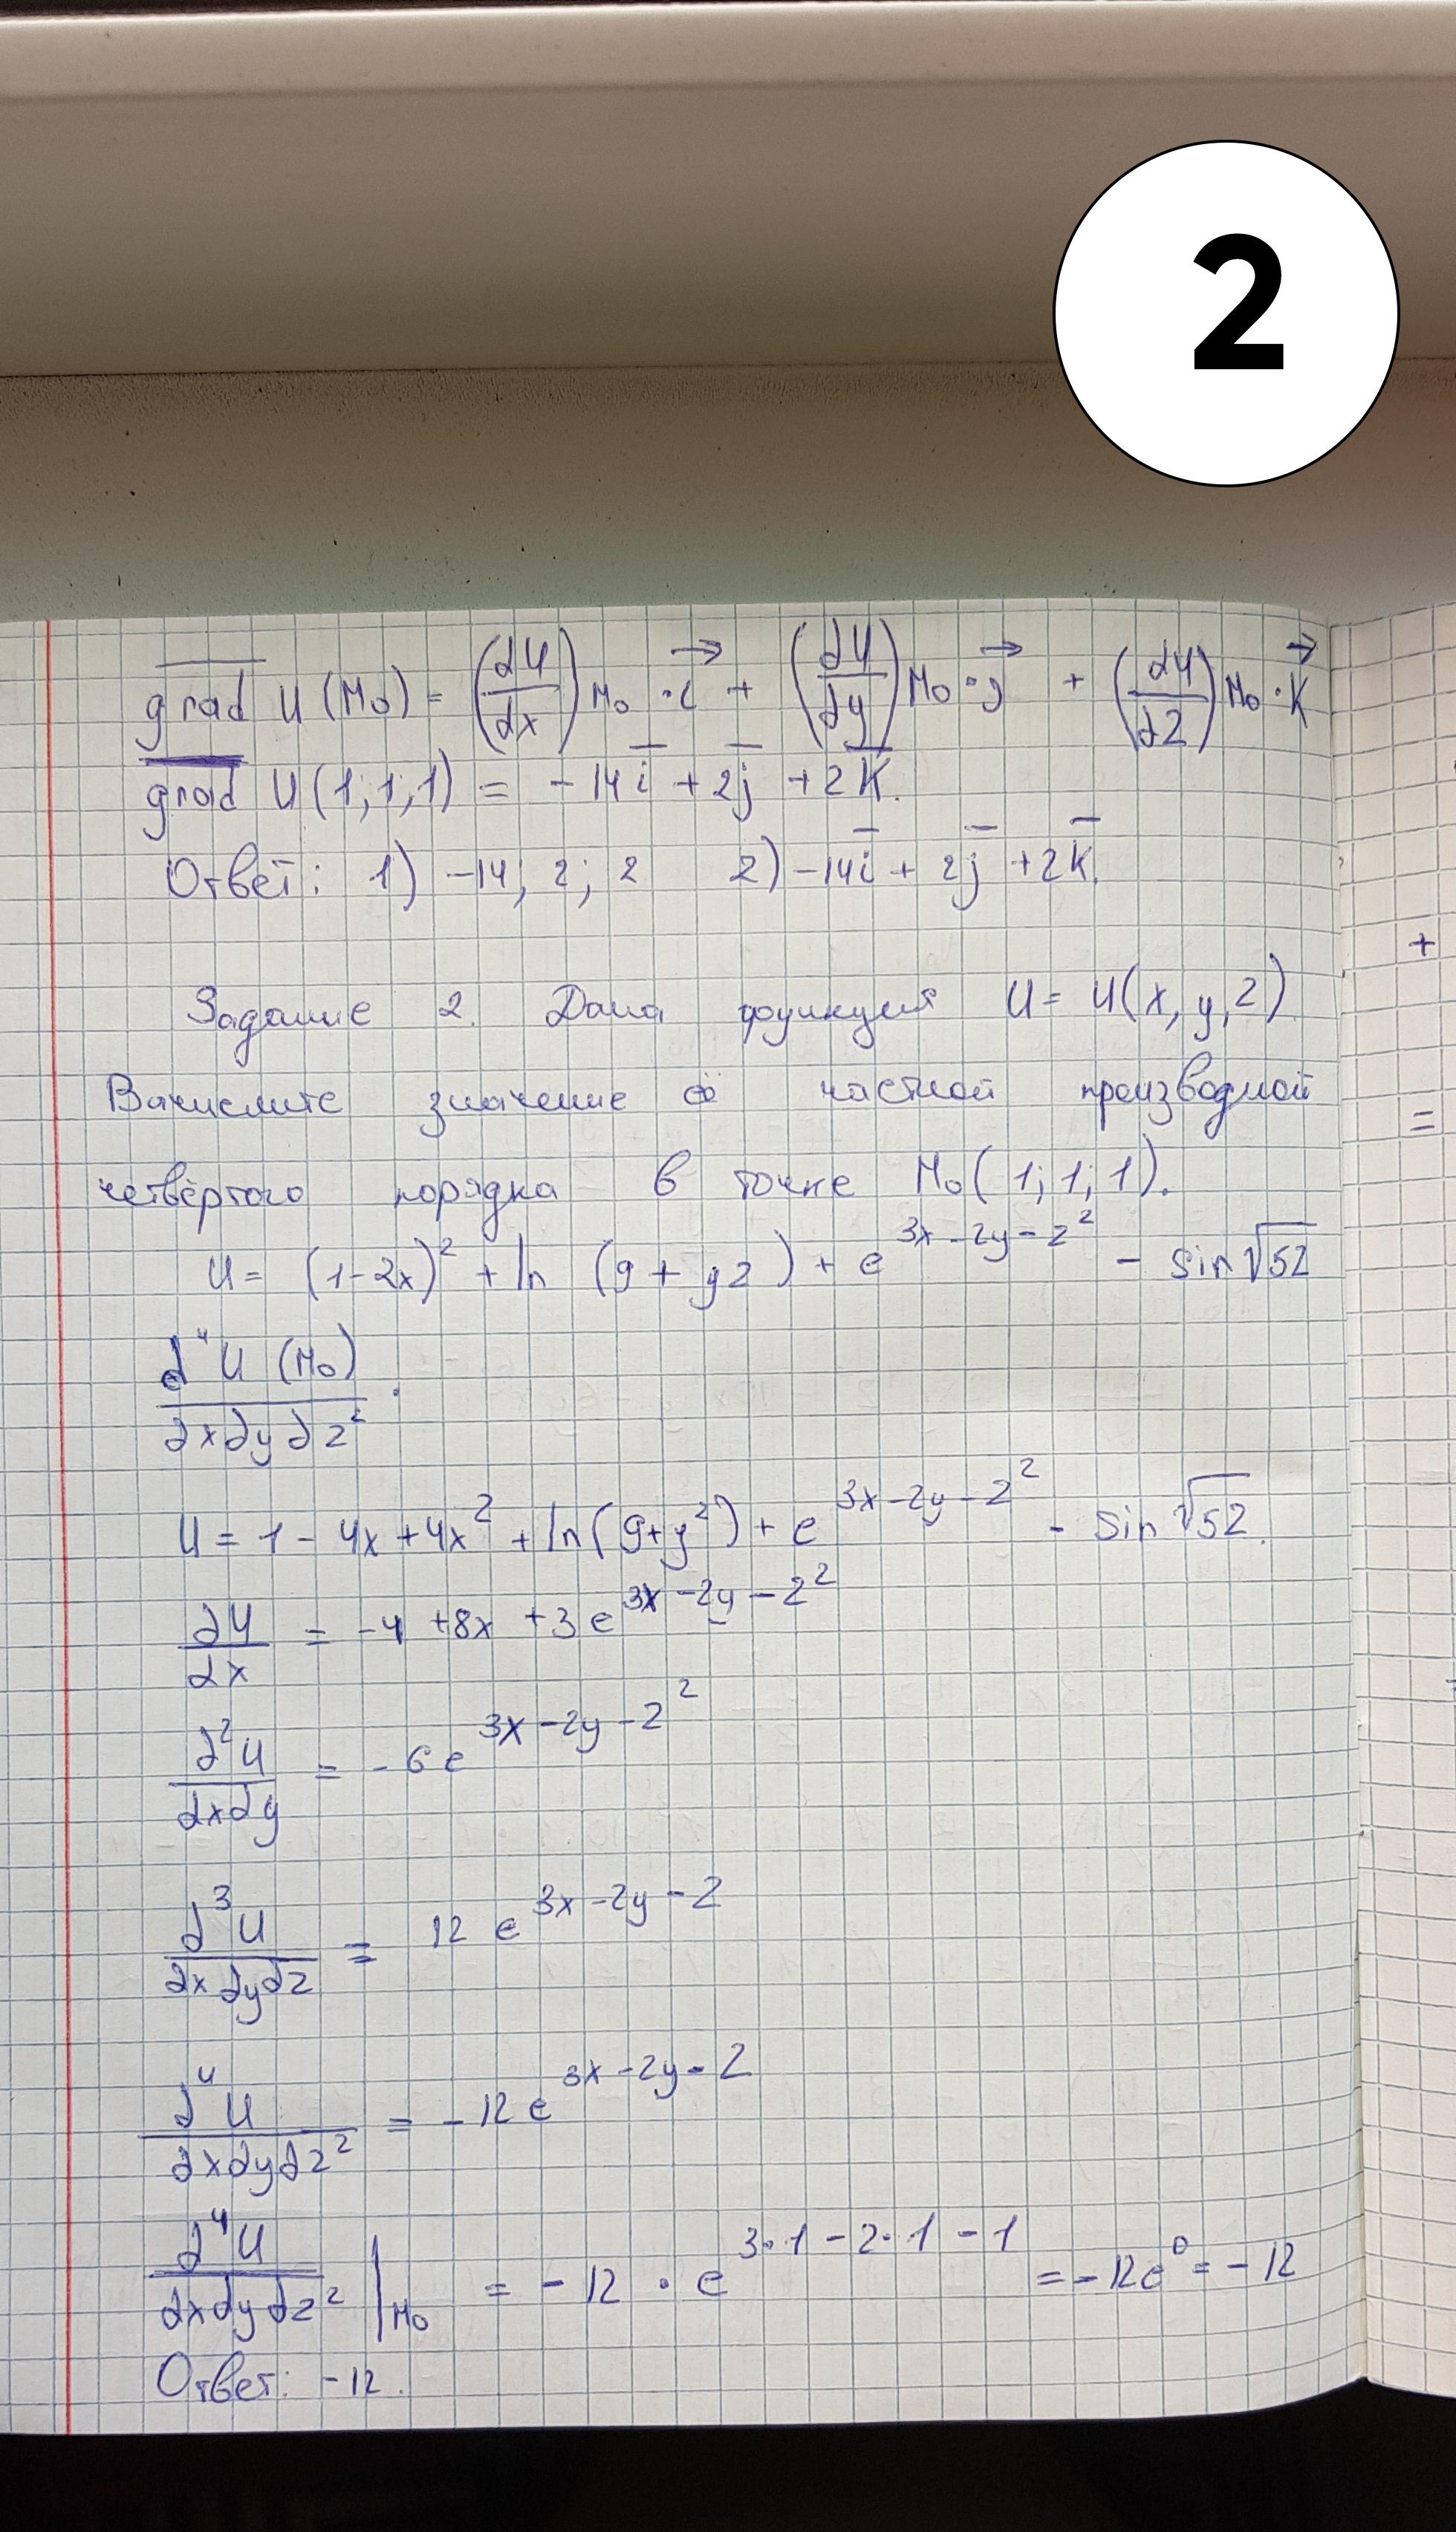 2
grad U (M₀) = (∂U/∂x) M₀ · i + (∂U/∂y) M₀ · j + (∂U/∂z) M₀ · k
grad U (1; 1; 1) = - 14 i + 2j + 2 k.
Ответ: 1) -14; 2; 2 2) -14i + 2j + 2k.
Задание 2. Дана функция U = U(x, y, z)
Вычислите значение её частной производной
четвёртого порядка в точке M₀ (1; 1; 1).
U = (1-2x)² + ln (9 + y2) + e^(3x-2y-z²) - sin √52
∂⁴U (M₀)/∂x∂y∂z².
U = 1 - 4x + 4x² + ln(9+y²) + e^(3x-2y-z²) - sin √52.
∂U/∂x = -4 + 8x + 3e^(3x-2y-z²)
∂²U/∂x∂y = - 6e^(3x-2y-z²)
∂³U/∂x∂y∂z = 12 e^(3x-2y-z)
∂⁴U/∂x∂y∂z² = - 12 e^(3x-2y-z)
∂⁴U/∂x∂y∂z² |M₀ = - 12 · e^(3·1-2·1-1) = - 12e⁰ = - 12
Ответ: -12.
+
=